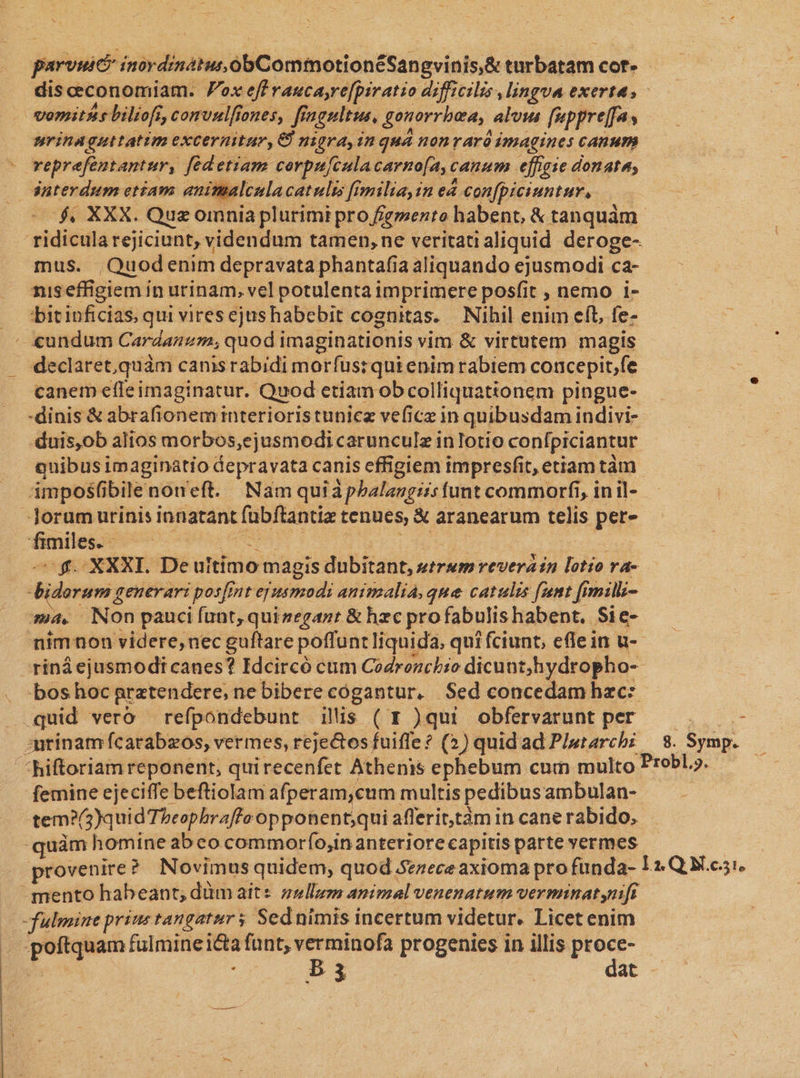 parvus&' inordinatus,obCommotionéSangvinis,& turbatam cor-
dis œconomiam. Vox est rauca,respiratio difficilis, lingva exerta,
vomitûs biliosi, convulsiones, singultus, gonorrhœa, alvus suppressa,
urina guttatim excernitur, & nigra, in quâ non rarò imagines canum
repræsentantur, sed etiam corpuscula carnosa, canum effigie donata,
interdum etiam animalcula catulis similia, in eâ conspiciuntur.
§. XXX. Quæ omnia plurimi pro figmento habent, & tanquàm
ridicula rejiciunt, videndum tamen, ne veritati aliquid deroge-
mus. Quod enim depravata phantasia aliquando ejusmodi ca-
nis effigiem in urinam, vel potulenta imprimere possit, nemo i-
bit inficias, qui vires ejus habebit cognitas. Nihil enim est, se-
cundum Cardanum, quod imaginationis vim & virtutem magis
declaret, quàm canis rabidi morsus: qui enim rabiem concepit, se
canem esse imaginatur. Quod etiam ob colliquationem pingue-
dinis & abrasionem interioris tunicæ vesicæ in quibusdam indivi-
duis, ob alios morbos, ejusmodi carunculæ in lotio conspiciantur
quibus imaginatio depravata canis effigiem impressit, etiam tàm
impossibile non est. Nam qui à phalangiis sunt commorsi, in il-
lorum urinis innatant substantiæ tenues, & aranearum telis per-
similes.
§. XXXI. De ultimo magis dubitant, utrum reverâ in lotio ra-
bidorum generari possint ejusmodi animalia, quæ catulis sunt simili-
ma. Non pauci sunt, qui negant & hæc pro fabulis habent. Si e-
nim non videre, nec gustare possunt liquida, quî sciunt, esse in u-
rinâ ejusmodi canes? Idcircò cum Codronchio dicunt, hydropho-
bos hoc prætendere, ne bibere cogantur. Sed concedam hæc:
quid verò respondebunt illis (1) qui observarunt per
urinam scarabæos, vermes, rejectos fuisse? (2) quid ad Plutarchi 8. Symp.
historiam reponent, qui recenset Athenis ephebum cum multo Probl.9.
semine ejecisse bestiolam asperam, cum multis pedibus ambulan-
tem?(3)quid Theophrasto opponent, qui asserit, tàm in cane rabido,
quàm homine ab eo commorso, in anteriore capitis parte vermes
provenire? Novimus quidem, quod Senecæ axioma pro funda- l 2. Q N.c.31.
mento habeant, dùm ait: nullum animal venenatum verminat, nisi
fulmine prius tangatur; Sed nimis incertum videtur. Licet enim
postquam fulmine icta sunt, verminosa progenies in illis proce-
B 3 dat